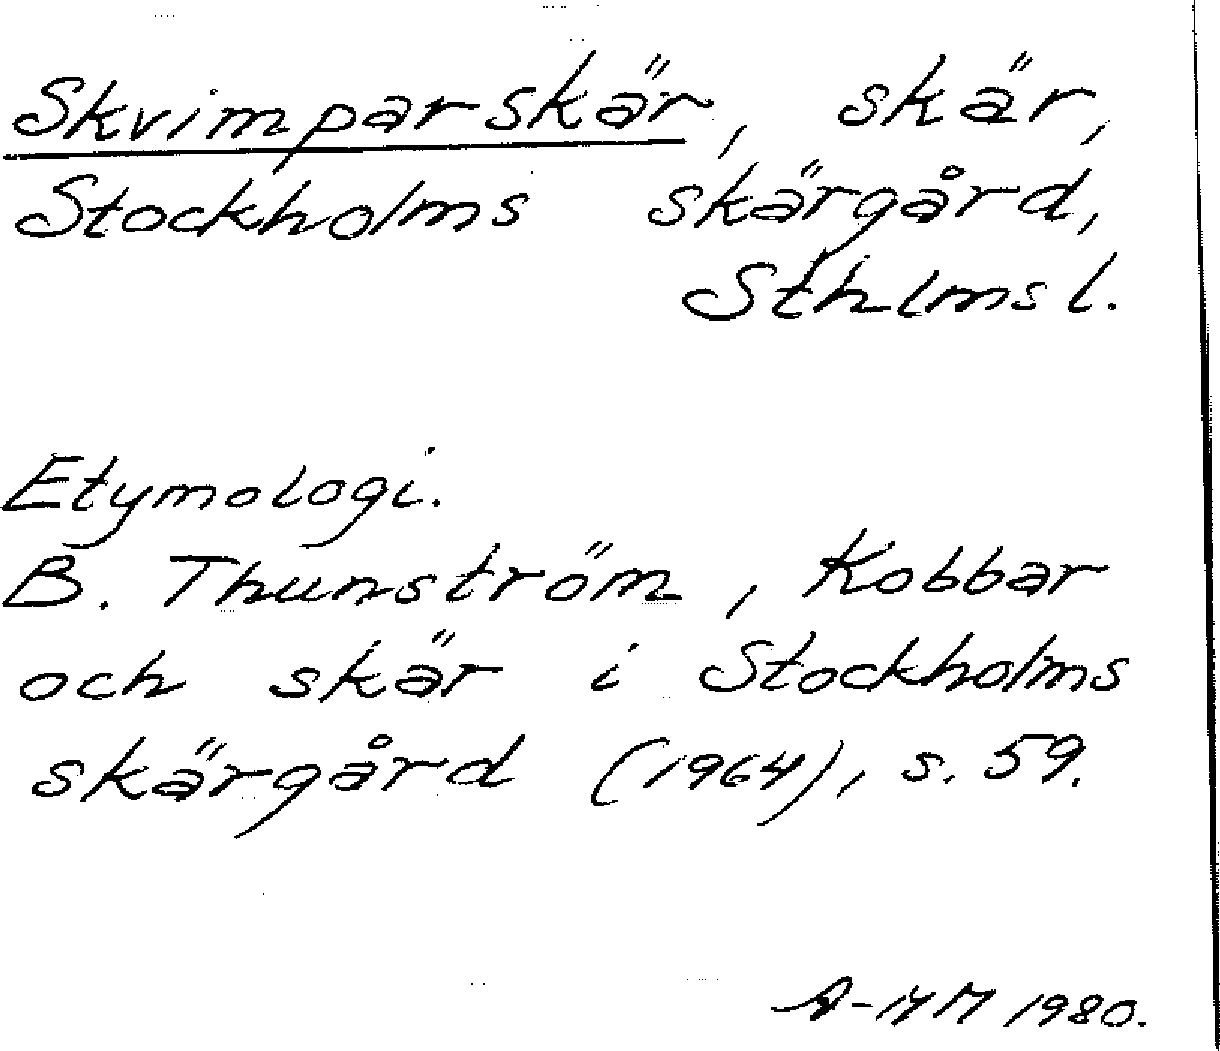 Skvimparskär, skär,
Stockholms skärgård,
Sthlms l.
Etymologi.
B. Thunström, Kobbar
och skär i Stockholms
skärgård (1964), s. 59.
A-MM 1980.